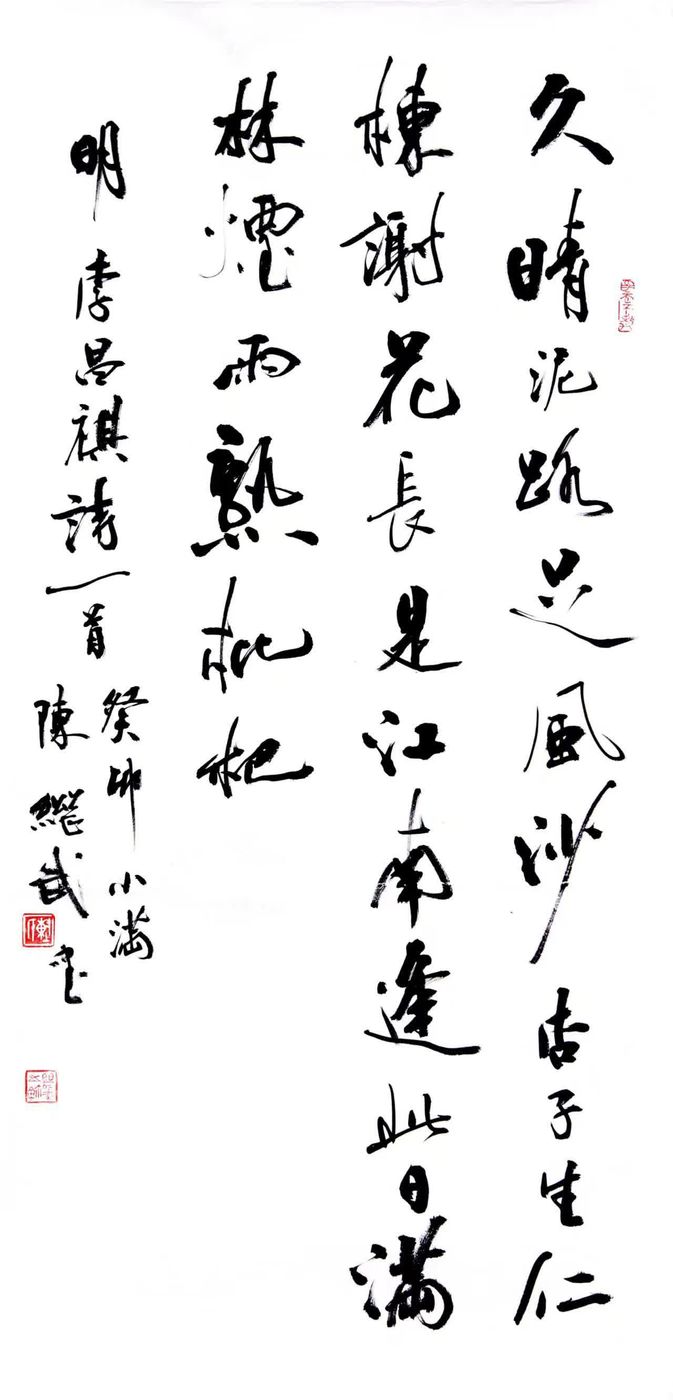 久晴泥路足風沙杏子生仁
楝謝花長是江南逢此日滿
林煙雨熟枇杷
明李昌祺詩一首
癸卯小滿
陳繼武書
陳